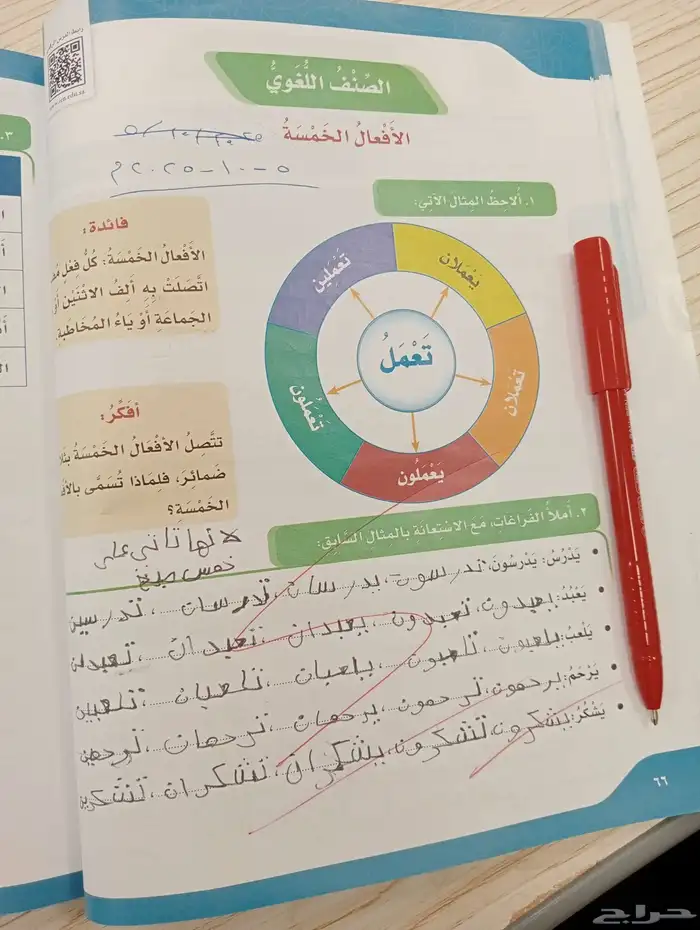 رابط الدرس الرقمي
www.ien.edu.sa
الصِّنْفُ اللُّغَوِيُّ
الأَفْعالُ الخَمْسَةُ
٥-١٠-٢٠٢٥م
١. أُلاحِظُ المِثالَ الآتِيَ:
فائدة:
الأَفْعالُ الخَمْسَةُ: كُلُّ فِعْلٍ
اتَّصَلَتْ بِهِ أَلِفُ الاثْنَيْنِ أَوْ
الجَماعَةِ أَوْ ياءُ المُخاطَبَةِ
تَعْمَلُ
يَعْمَلان
تَعْمَلان
يَعْمَلُون
تَعْمَلُون
تَعْمَلين
أفكّر:
تتَّصِلُ الأفْعالُ الخَمْسَةُ
ضَمائرَ، فَلِماذا تُسَمَّى
الخَمْسَةَ؟
لانها تاتي على
خمس صيغ
٢. أَملأُ الفَراغاتِ، مَعَ الاسْتِعانَةِ بِالمِثالِ السّابِقِ:
يَدْرُسُ: يَدْرُسُونَ، تدرسون، يدرسان، تدرسان، تدرسين
يَعْبُدُ: يعبدون، تعبدون، يعبدان، تعبدان، تعبدين
يَلْعَبُ: يلعبون، تلعبون، يلعبان، تلعبان، تلعبين
يَرْحَمُ: يرحمون، ترحمون، يرحمان، ترحمان، ترحمين
يَشْكُرُ: يشكرون، تشكرون، يشكران، تشكران، تشكرين
٦٦
٣.
حراج